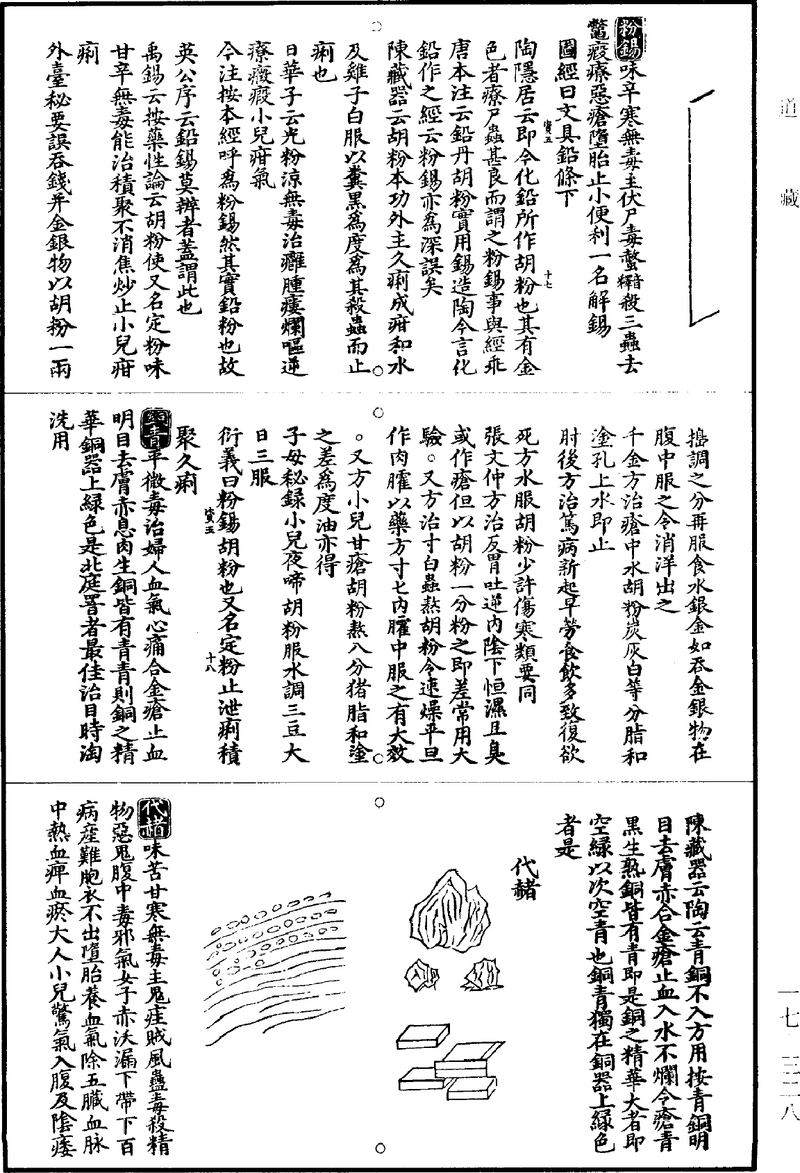 道藏
一七 三二八
粉錫味辛寒無毒主伏尸毒螫殺三蟲去
鼈瘕療惡瘡墮胎止小便利一名解錫
圖經曰文具鉛條下
陶隱居云即今化鉛所作胡粉也其有金
色者療尸蟲甚良而謂之粉錫事與經乖
唐本注云鉛丹胡粉實用錫造陶今言化
鉛作之經云粉錫亦為深誤矣
陳藏器云胡粉本功外主久痢成疳和水
及雞子白服以糞黑為度為其殺蟲而止
痢也
日華子云光粉涼無毒治癰腫瘻爛嘔逆
療癥瘕小兒疳氣
今注按本經呼為粉錫然其實鉛粉也故
英公序云鉛錫莫辨者蓋謂此也
禹錫云按藥性論云胡粉使又名定粉味
甘辛無毒能治積聚不消焦炒止小兒疳
痢
外臺秘要誤吞錢并金銀物以胡粉一兩
寅五
十七
搗調之分再服食水銀金如吞金銀物在
腹中服之令消洋出之
千金方治瘡中水胡粉炭灰白等分脂和
塗孔上水即止
肘後方治篤病新起早勞食飲多致復欲
死方水服胡粉少許傷寒類要同
張文仲方治反胃吐逆內陰下恒濕且臭
或作瘡但以胡粉一分粉之即差常用大
驗。又方治寸白蟲熬胡粉令速燥平旦
作肉臛以藥方寸匕內臛中服之有大效
。又方小兒甘瘡胡粉熬八分猪脂和塗
之差為度油亦得
子母秘錄小兒夜啼胡粉服水調三豆大
日三服
衍義曰粉錫胡粉也又名定粉止泄痢積
聚久痢
銅青平微毒治婦人血氣心痛合金瘡止血
明目去膚赤息肉生銅皆有青青則銅之精
華銅器上綠色是北庭署者最佳治目時淘
洗用
寅五
十八
陳藏器云陶云青銅不入方用按青銅明
目去膚赤合金瘡止血入水不爛令瘡青
黑生熟銅皆有青即是銅之精華大者即
空綠以次空青也銅青獨在銅器上綠色
者是
代赭
代赭味苦甘寒無毒主鬼疰賊風蠱毒殺精
物惡鬼腹中毒邪氣女子赤沃漏下帶下百
病產難胞衣不出墮胎養血氣除五臟血脉
中熱血痺血瘀大人小兒驚氣入腹及陰痿